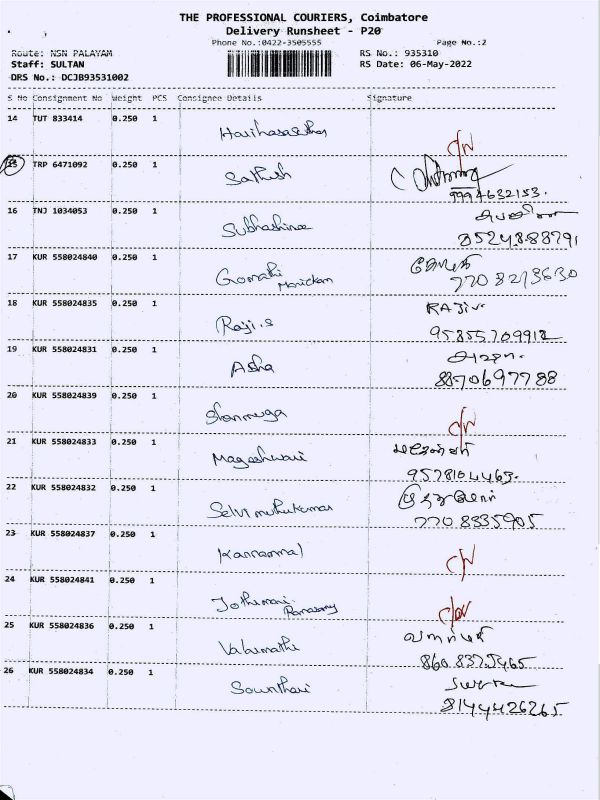 THE PROFESSIONAL COURIERS, Coimbatore
Delivery Runsheet - P20
Phone No.:0422-3505555 Page No.:2
Route: NSN PALAYAM RS No.: 935310
Staff: SULTAN RS Date: 06-May-2022
DRS No.: DCJB93531002
S No Consignment No Weight PCS Consignee Details Signature
14 TUT 833414 0.250 1
15 TRP 6471092 0.250 1 Sathish
9994632153.
16 TNJ 1034053 0.250 1 Subhashinee
8524888791
17 KUR 558024840 0.250 1 Gomathi
Manickam 7708213630
18 KUR 558024835 0.250 1 Raji.s RAJIV
95855709912
19 KUR 558024831 0.250 1 Asha
8870697788
20 KUR 558024839 0.250 1 Shanmuga
21 KUR 558024833 0.250 1 Mageshwari
9578104463.
22 KUR 558024832 0.250 1 Selvi muthukumar
7708335905
23 KUR 558024837 0.250 1 Kannammal
24 KUR 558024841 0.250 1 Jothimani
Ramasamy
25 KUR 558024836 0.250 1 Valarmathi
26 KUR 558024834 0.250 1 Sounthari
8144426265